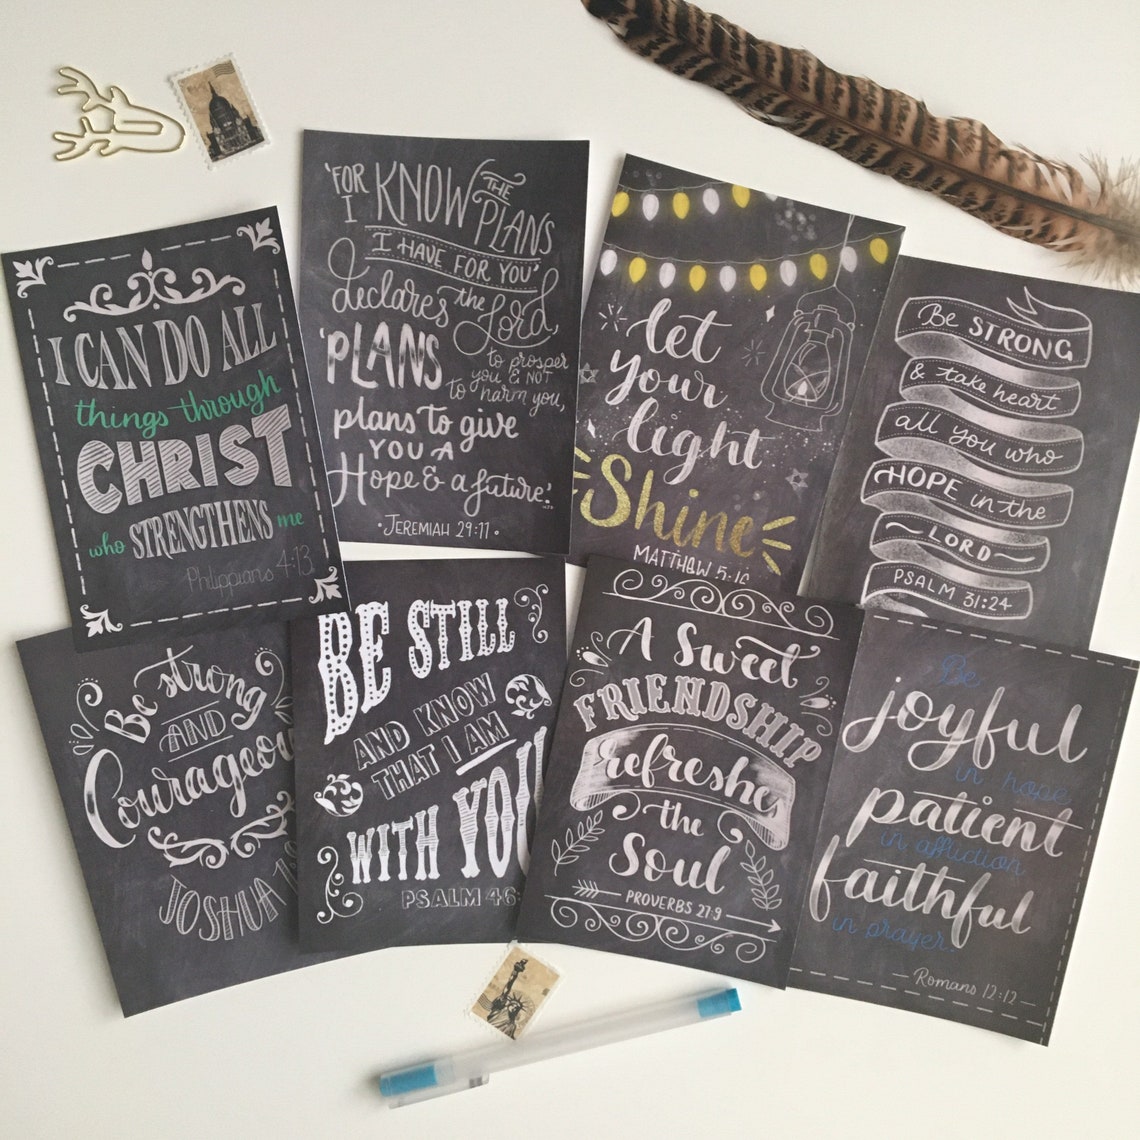 I CAN DO ALL
things through
CHRIST
who STRENGTHENS me
Philippians 4:13
'FOR I KNOW THE PLANS
I HAVE FOR YOU'
declares the Lord,
'PLANS to prosper
you & NOT
to harm you,
plans to give
YOU A
Hope & a future.'
• JEREMIAH 29:11 •
let
your
light
Shine
MATTHEW 5:16
Be STRONG
& take heart
all you who
HOPE in the
LORD
PSALM 31:24
Be strong
AND
Courageou
JOSHUA
BE STILL
AND KNOW
THAT I AM
WITH YOU
PSALM 46:
A Sweet
FRIENDSHIP
refreshes
the
Soul
PROVERBS 27:9
Be
joyful
in hope
patient
in affliction
faithful
in prayer
— Romans 12:12 —